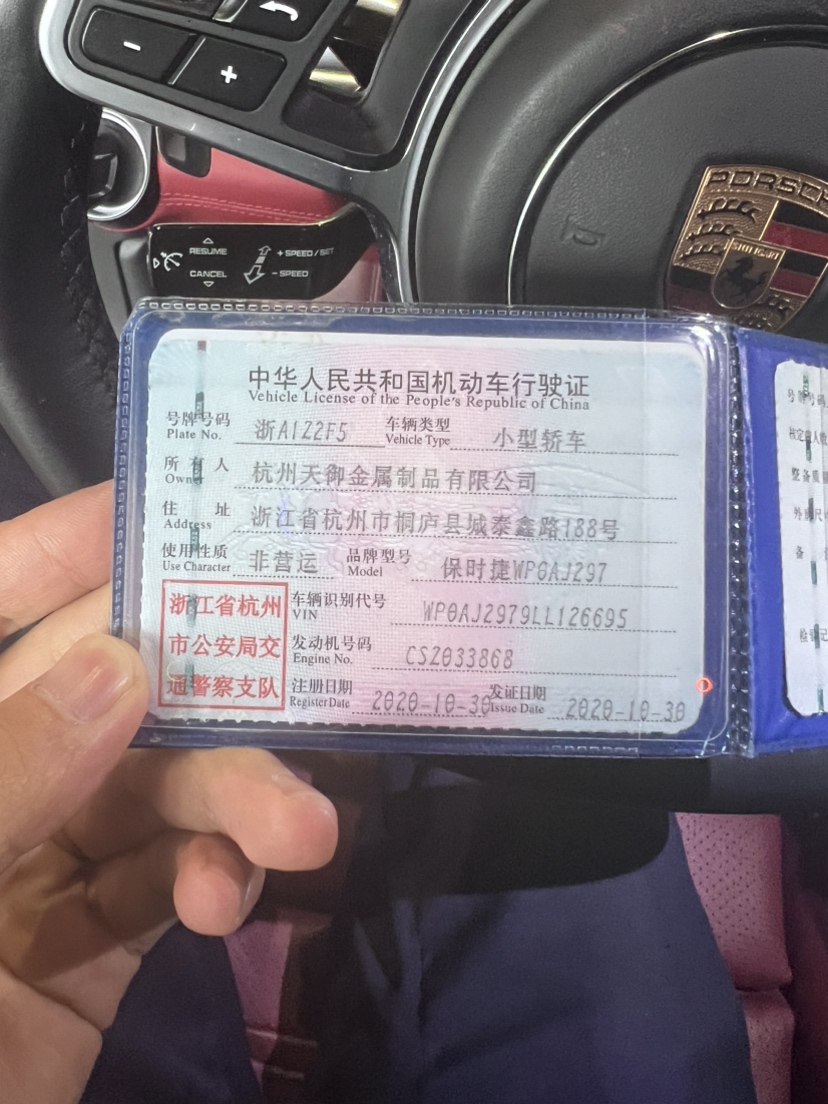 −
+
RESUME
+ SPEED/SET
CANCEL
− SPEED
PORSCH
STUTTGART
中华人民共和国机动车行驶证
Vehicle License of the People's Republic of China
号牌号码 浙A1Z2F5 车辆类型 小型轿车
Plate No. Vehicle Type
所有人 杭州天御金属制品有限公司
Owner
住址 浙江省杭州市桐庐县城泰鑫路188号
Address
使用性质 非营运 品牌型号 保时捷WP0AJ297
Use Character Model
浙江省杭州 车辆识别代号 WP0AJ2979LL126695
VIN
市公安局交 发动机号码 CSZ033868
Engine No.
通警察支队 注册日期 2020-10-30 发证日期 2020-10-30
Register Date Issue Date
号牌号码
核定载人数
整备质量
外廓尺寸
备
检验记